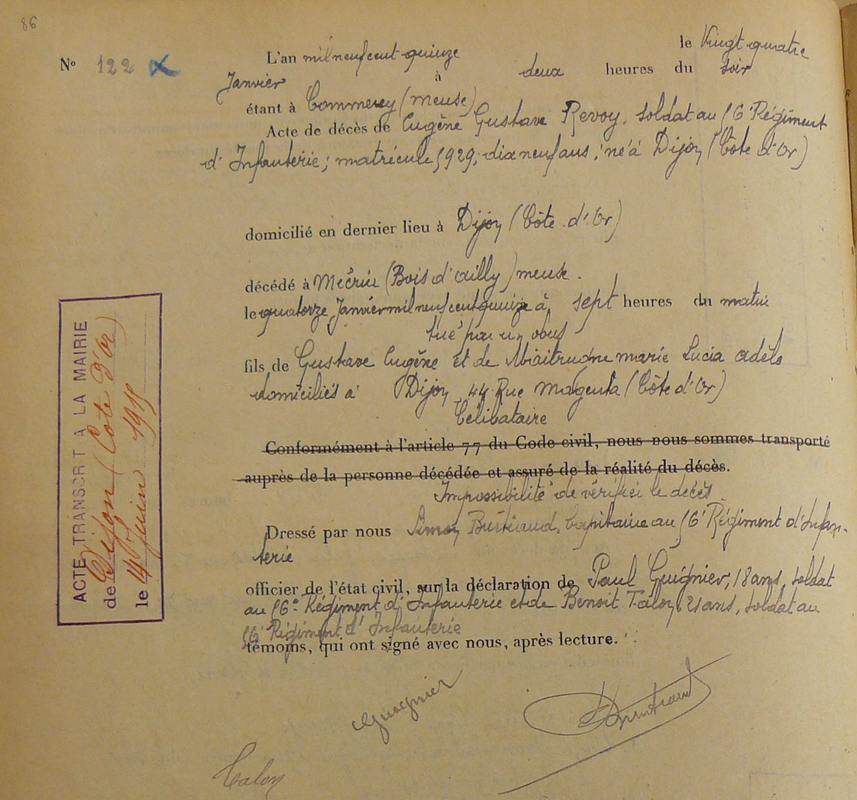 86
N° 122
L'an mil neuf cent quinze le Vingt quatre
Janvier à deux heures du soir
étant à Commercy (meuse)
Acte de décès de Eugène Gustave Revoy, soldat au 56e Régiment
d'Infanterie; matricule 5929, dix neuf ans, né à Dijon (Côte d'Or)
domicilié en dernier lieu à Dijon (Côte d'Or)
décédé à Mécrin (Bois d'ailly) meuse.
le quatorze Janvier mil neuf cent quinze à sept heures du matin
tué par un obus
fils de Gustave Eugène et de marie Lucia adèle
domiciliés à Dijon, 44 Rue Magenta (Côte d'Or)
Célibataire
Conformément à l'article 77 du Code civil, nous nous sommes transporté
auprès de la personne décédée et assuré de la réalité du décès.
Impossibilité de vérifier le décès.
Dressé par nous Capitaine au 56e Régiment d'Infan-
terie
officier de l'état civil, sur la déclaration de Paul Guignier, 18 ans, soldat
au 56e Régiment d'Infanterie et de Benoit Talon, 21 ans, soldat au
56e Régiment d'Infanterie
témoins, qui ont signé avec nous, après lecture.
Guignier
Talon
ACTE TRANSCRIT A LA MAIRIE
de Dijon (Côte d'Or)
le 14 Juin 1915